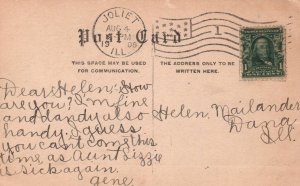 JOLIET
AUG 4
PM
1908
ILL.
1
Post Card
THIS SPACE MAY BE USED FOR
COMMUNICATION.
THE ADDRESS ONLY TO BE
WRITTEN HERE.
Dear Helen:- How
are you? I'm fine
and dandy also
handy. I guess
you can't come this
time as Aunt Lizzie
is sick again.
Gene
Helen Mailander
Dana
Ill.